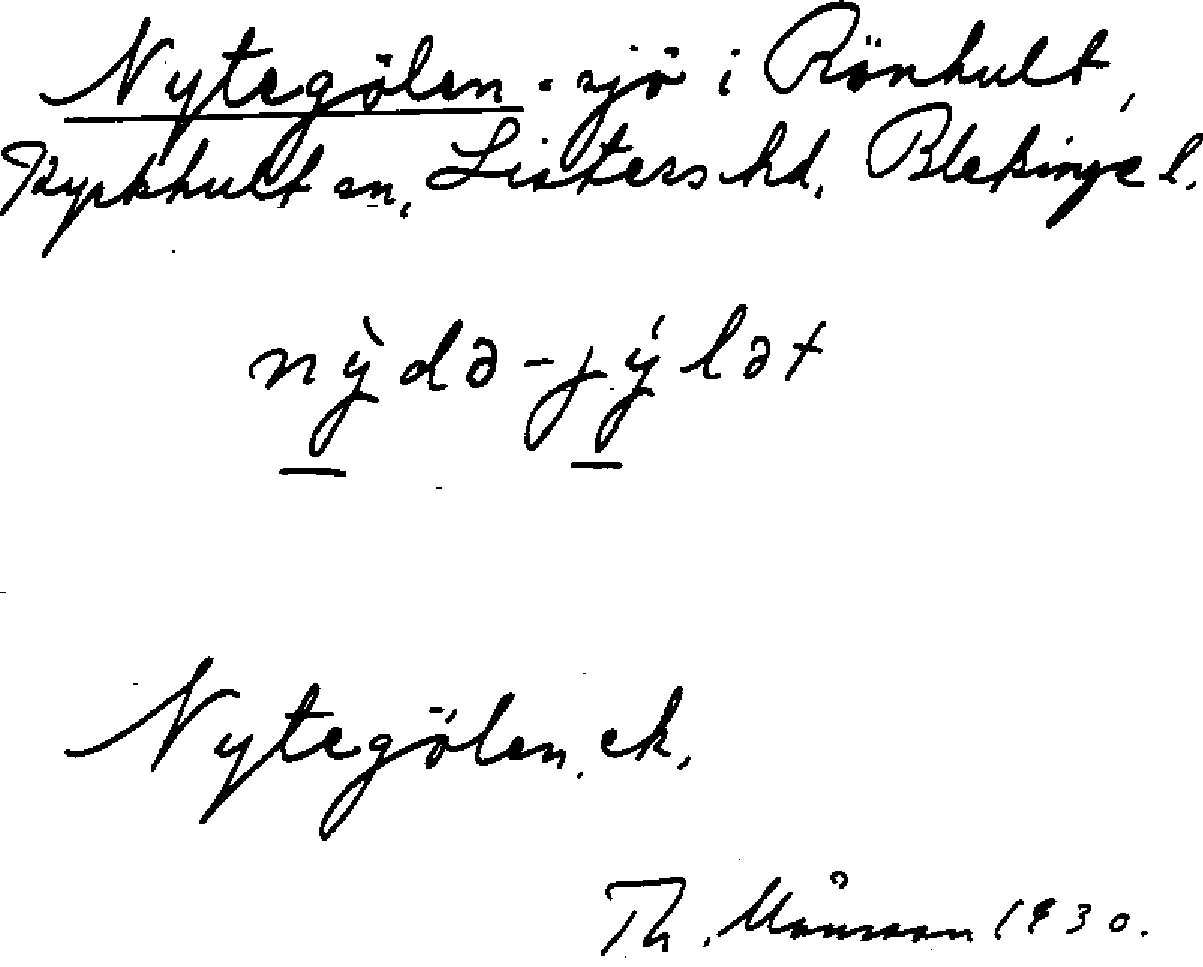 Nytegölen - sjö i Rönhult,
Kyrkhult sn, Listers hd. Blekinge l.
nỳdə-jýlət
Nytegölen, ek.
Th. Månsson 1930.